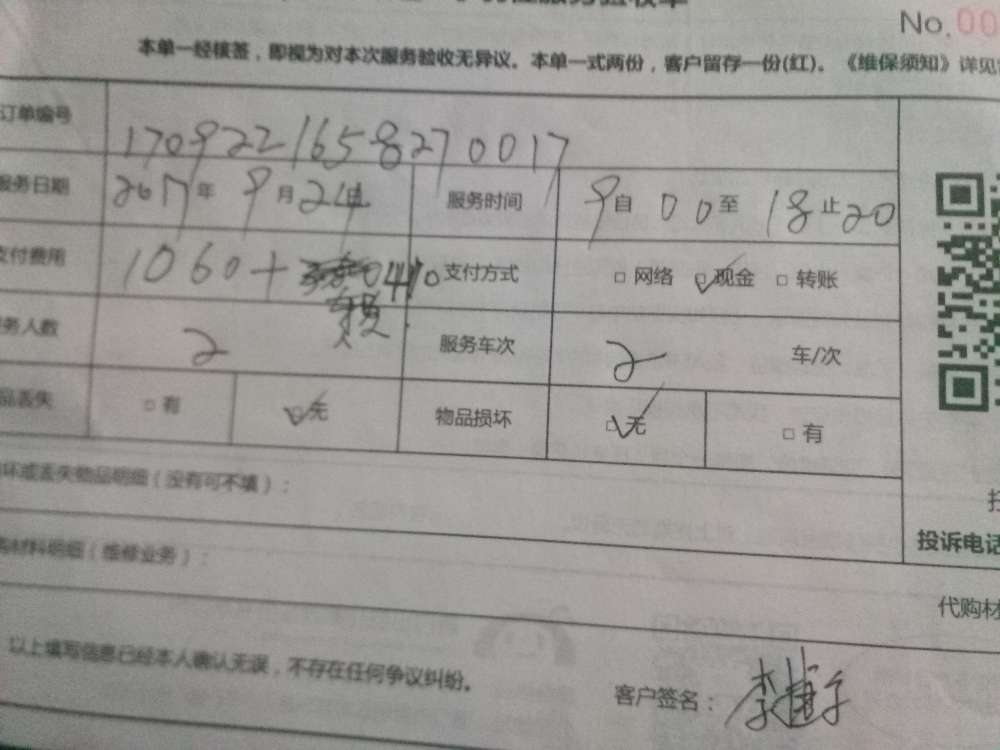 服务验收单
No.00
本单一经核签，即视为对本次服务验收无异议。本单一式两份，客户留存一份(红)。《维保须知》详见
订单编号 170922165827 0017
服务日期 2017年 9月24日 服务时间 9自 00至 18止20
支付费用 1060+ 0410 支付方式 □网络 ☑现金 □转账
务人数 2 服务车次 2 车/次
品丢失 □有 ☑无 物品损坏 ☑无 □有
坏或丢失物品明细（没有可不填）：
投诉电话
材料明细（维修业务）：
代购材
以上填写信息已经本人确认无误，不存在任何争议纠纷。
客户签名：李